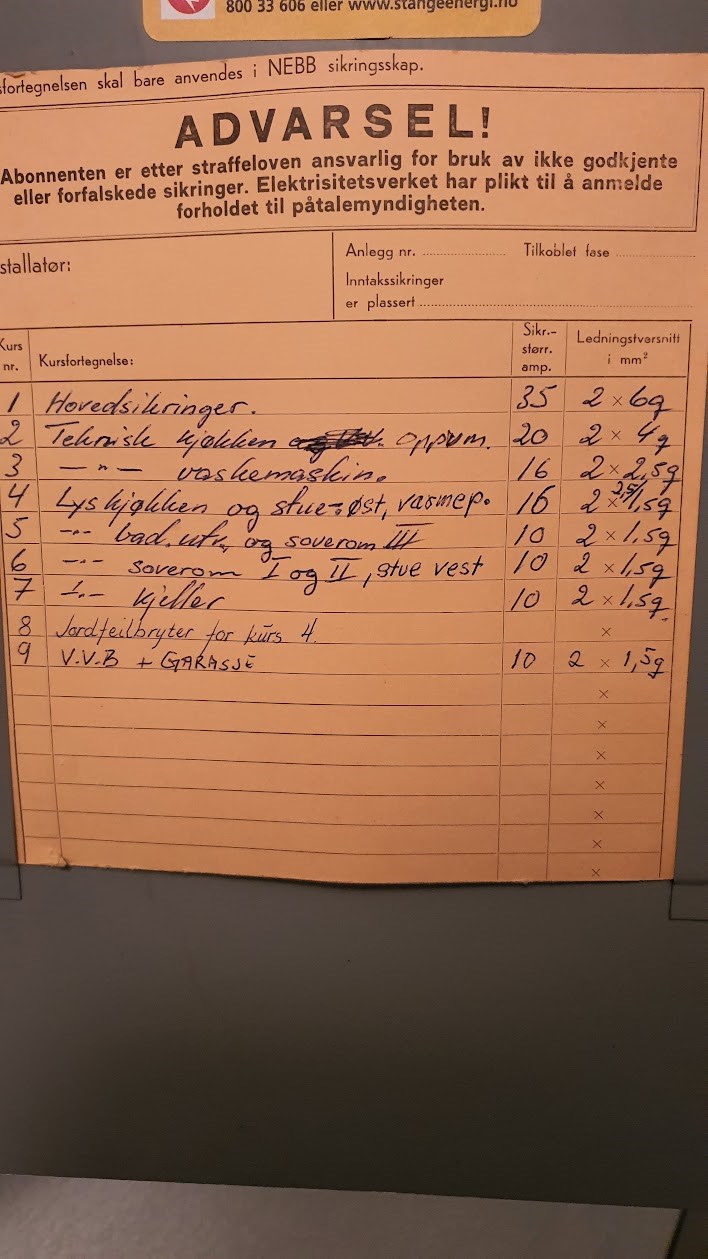 800 33 606 eller www.stangeenergi.no
sfortegnelsen skal bare anvendes i NEBB sikringsskap.
ADVARSEL!
Abonnenten er etter straffeloven ansvarlig for bruk av ikke godkjente
eller forfalskede sikringer. Elektrisitetsverket har plikt til å anmelde
forholdet til påtalemyndigheten.
stallatør:
Anlegg nr. Tilkoblet fase
Inntakssikringer
er plassert
Kurs nr. Kursfortegnelse: Sikr.- størr. amp. Ledningstversnitt i mm²
1 Hovedsikringer. 35 2 × 6q
2 Teknisk kjøkken oppvm. 20 2 × 4q
3 — " — vaskemaskin. 16 2 × 2,5q
4 Lys kjøkken og stue-øst, varmep. 16 2 × 2,5/1,5q
5 -"- bad. utv. og soverom III 10 2 × 1.5q
6 -"- soverom I og II, stue vest 10 2 × 1,5q
7 -"- kjeller 10 2 × 1.5q.
8 Jordfeilbryter for kurs 4. ×
9 V.V.B + GARASJE 10 2 × 1,5q
×
×
×
×
×
×
×